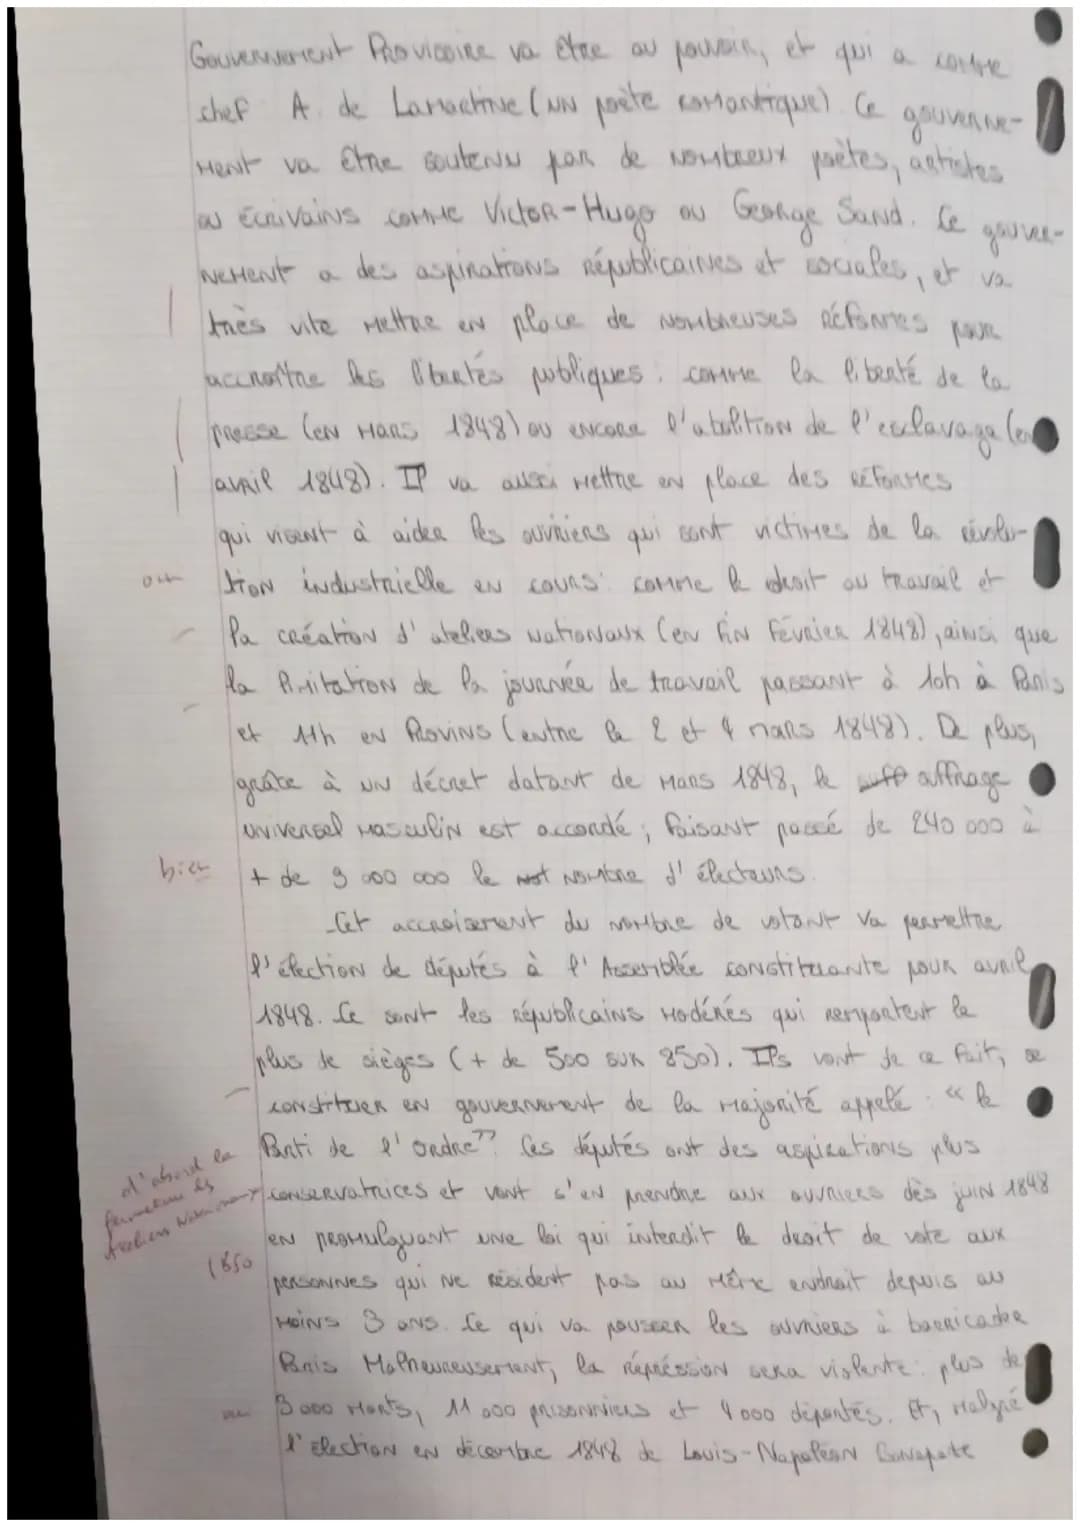 Gouvernement Provisoire va être au pouvoir, et qui a comme
chef A. de Lamartine (un poète romantique). Ce gouverne-
ment va être soutenu par de nombreux poètes, artistes
ou écrivains comme Victor-Hugo ou George Sand. Ce gouver-
nement a des aspirations républicaines et sociales, et va
très vite mettre en place de nombreuses réformes pour
accroître les libertés publiques : comme la liberté de la
presse (en mars 1848) ou encore l'abolition de l'esclavage (en
avril 1848). Il va aussi mettre en place des réformes
qui visent à aider les ouvriers qui sont victimes de la révolu-
oui
tion industrielle en cours : comme le droit au travail et
la création d'ateliers nationaux (en fin février 1848), ainsi que
la limitation de la journée de travail passant à 10h à Paris
et 11h en Provins (entre le 2 et 4 mars 1848). De plus,
grâce à un décret datant de mars 1848, le suff affrage
universel masculin est accordé ; faisant passé de 240 000 à
bien
+ de 9 000 000 le not nombre d'électeurs.
Cet accroisement du nombre de votant va permettre
l'élection de députés à l'Assemblée constituante pour avril
1848. Ce sont les républicains modérés qui remportent le
plus de sièges (+ de 500 sur 850). Ils vont de ce fait, se
constituer en gouvernement de la majorité appelé : « le
Parti de l'ordre ». Ces députés ont des aspirations plus
d'abord la
fermeture des
Ateliers Nationaux
conservatrices et vont s'en prendre aux ouvriers dès juin 1848
1850
en promulguant une loi qui interdit le droit de vote aux
personnes qui ne résident pas au même endroit depuis au
moins 3 ans. Ce qui va pousser les ouvriers à barricader
Paris. Malheureusement, la répréssion sera violente : plus de
3000 morts, 11 000 prisonniers et 4000 déportés. Et, malgré
l'élection en décembre 1848 de Louis-Napoléon Bonaparte